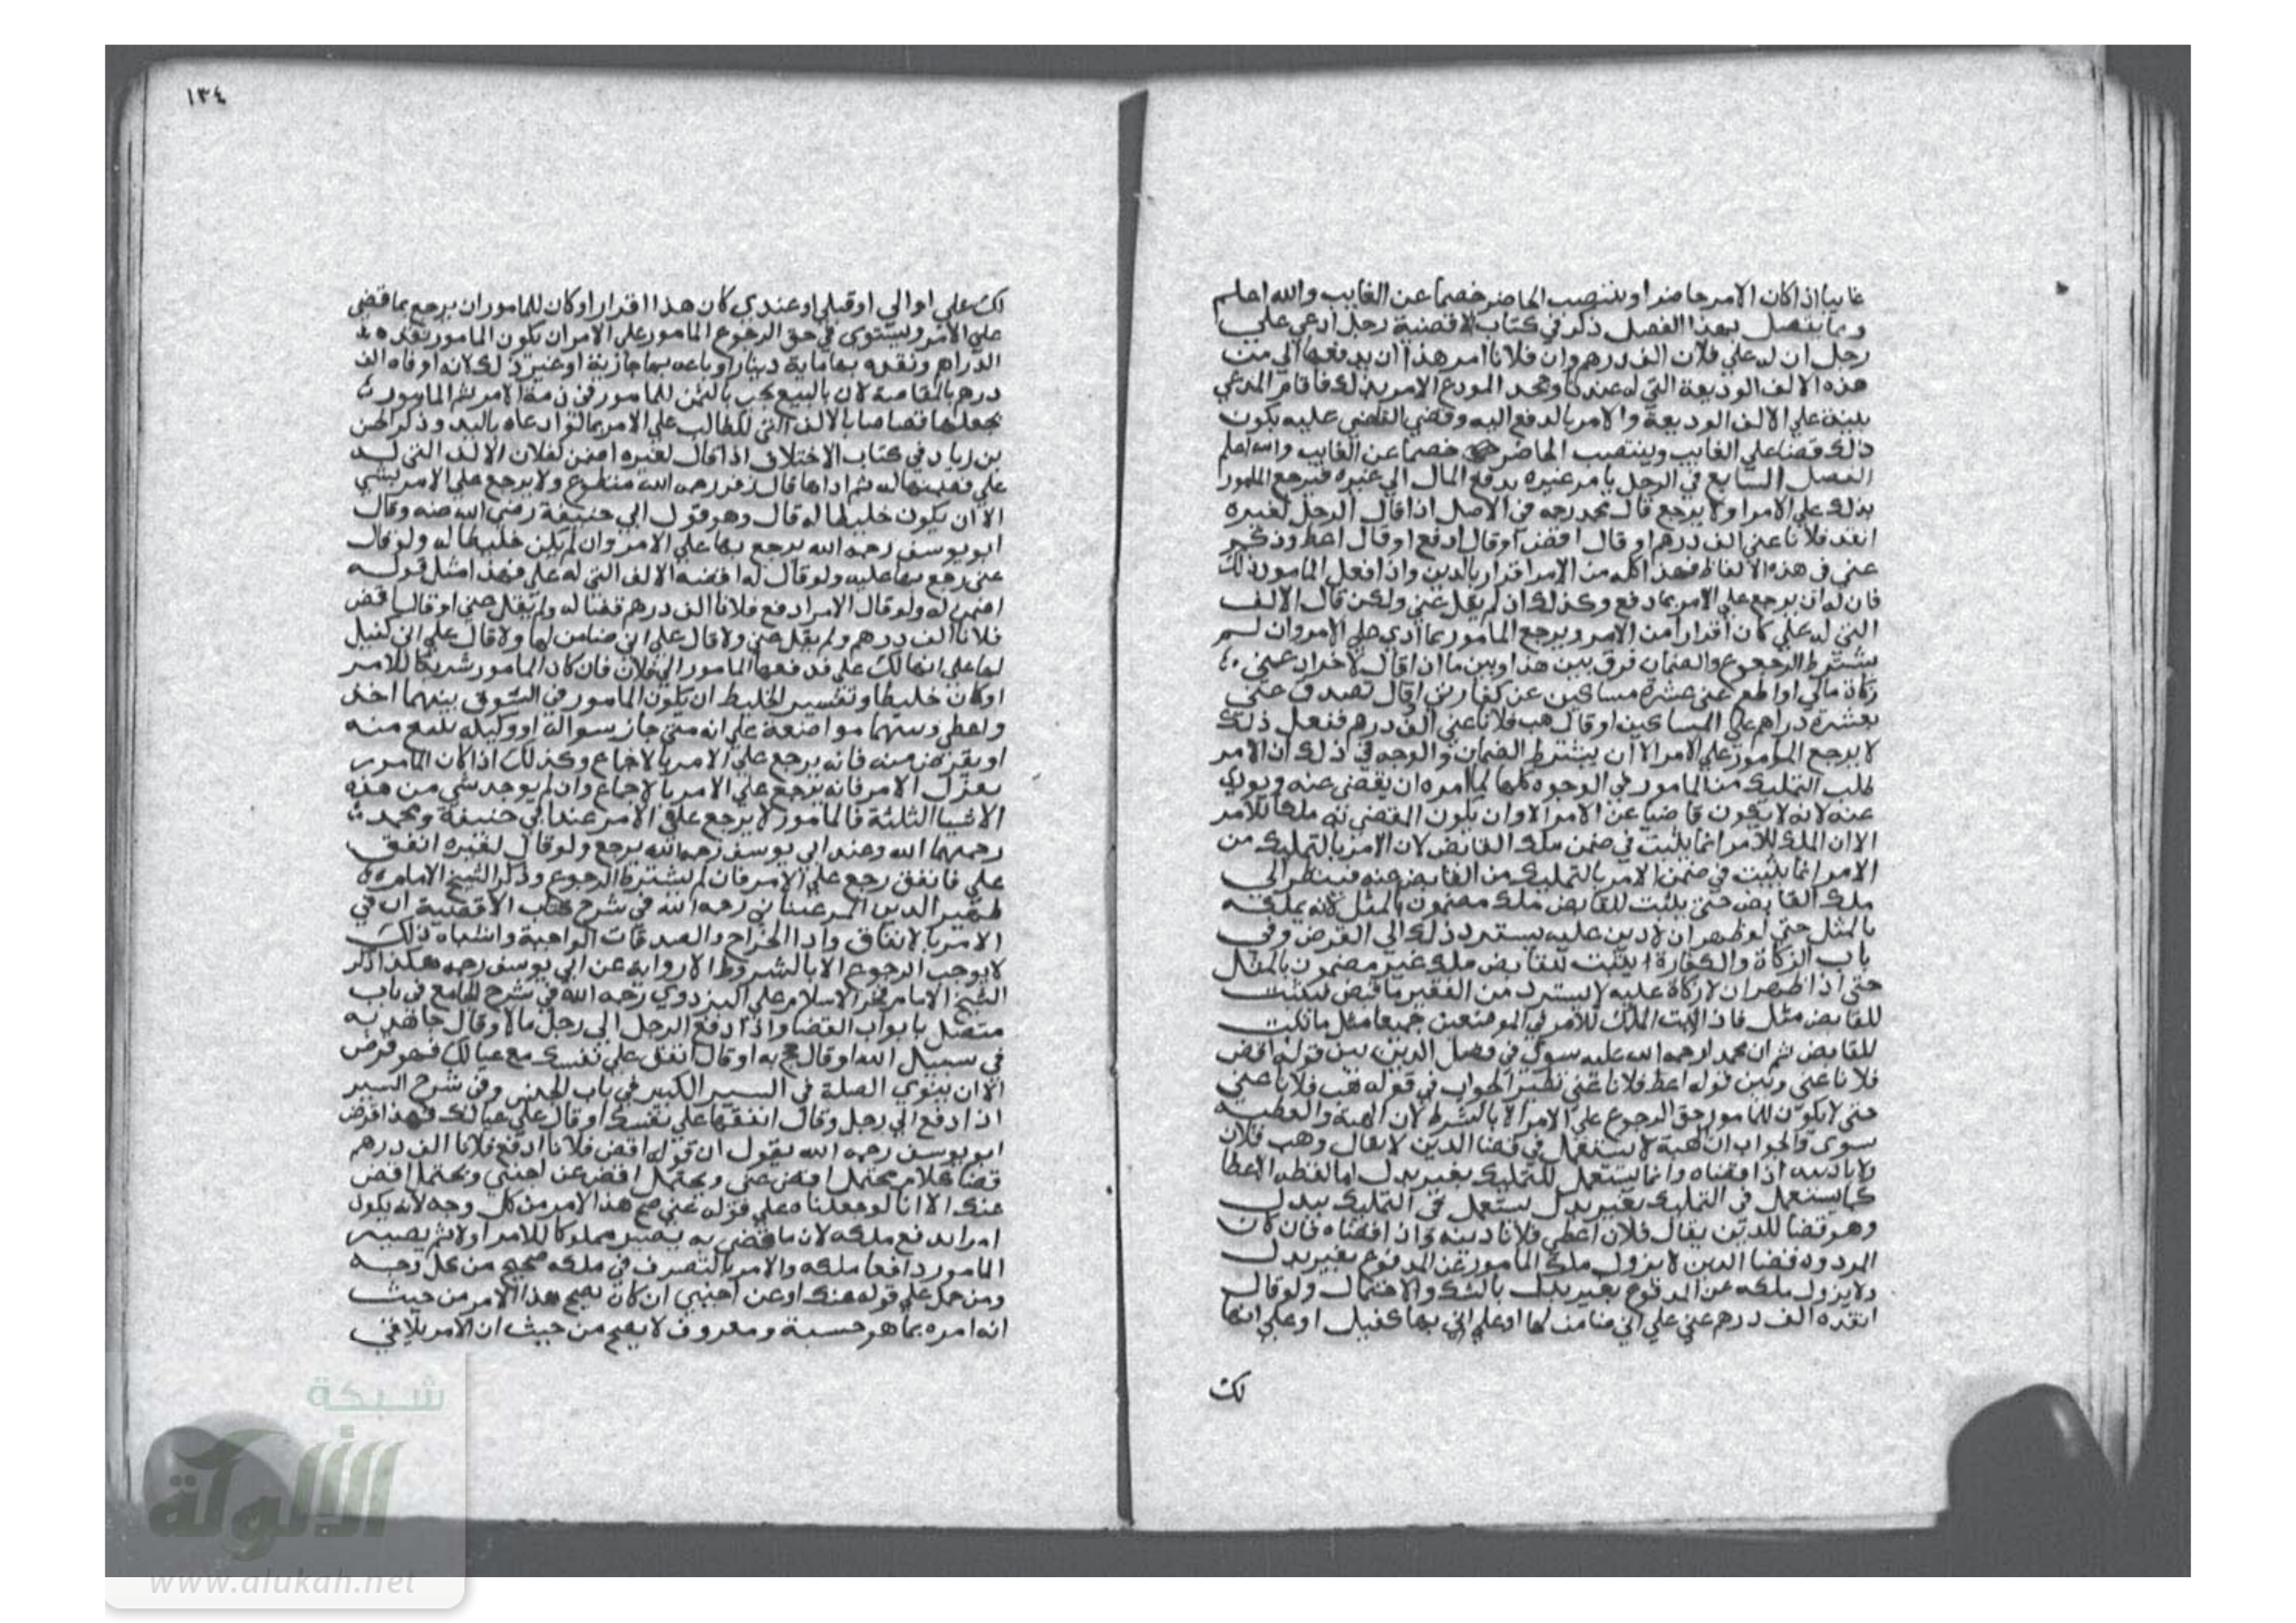 غايبا اذا كان الامر حاضرا وينتصب الحاضر خصما عن الغايب والله اعلم
ومما يتصل بهذا الفصل ذكر في كتاب الاقضية رجل ادعي علي
رجل ان له علي فلان الف درهم وان فلانا امر هذا ان يدفعها الي من
هذه الالف الوديعة التي له عندك وجحد المودع الامر بذلك فاقام المدعي
بينة علي الالف الوديعة والامر بالدفع اليه وقضي القاضي عليه يكون
ذلك قضا علي الغايب وينتصب الحاضر خصما عن الغايب والله اعلم
الفصل السابع في الرجل يامر غيره بدفع المال الي غيره فيرجع المامور
بذلك علي الامر او لا يرجع قال محمد رحه في الاصل اذا قال الرجل لغيره
انقد فلانا عني الف درهم او قال اقض او قال ادفع او قال اعط وذكر
عني في هذه الالفاظ فهذا كله من الامر اقرار بالدين واذا فعل المامور ذلك
فان له ان يرجع علي الامر بما دفع وكذلك اذا لم يقل عني ولكن قال الالف
التي له علي كان اقرارا من الامر ويرجع المامور بما ادي علي الامر وان لم
يشترط الرجوع والضمان فرق بين هذا وبين ما اذا قال لاخر اد عني
زكاة مالي او اطعم عني عشرة مساكين عن كفارتي او قال تصدق عني
بعشرة دراهم علي المساكين او قال هب فلانا عني الف درهم ففعل ذلك
لا يرجع المامور علي الامر الا ان يشترط الضمان والوجه في ذلك ان الامر
طلب التمليك من المامور في الوجوه كلها لما امره ان يقضي عنه ويودي
عنه لانه لا يكون قاضيا عن الامر الا وان يكون المقضي به ملكا للامر
الا ان الملك للامر انما يثبت في ضمن ملك القابض لان الامر بالتمليك من
الامر انما يثبت في ضمن الامر بالتمليك من القابض عنه فينظر الي
ملك القابض حتي يثبت للقابض ملك مضمون بالمثل لانه يملكه
بالمثل حتي لو ظهر ان لا دين عليه يسترد ذلك الي القرض وفي
باب الزكاة والكفارة يثبت للقابض ملك غير مضمون بالمثل
حتي اذا ظهر ان لا زكاة عليه لا يسترد من الفقير ما قبض
للقابض مثل فاذا الملك للامر في الموضعين جميعا مثل ما
للقابض ثم ان محمدا رحمة الله عليه سوي في فصل الدين بين قوله اقض
فلانا عني وبين قوله اعط فلانا عني نظير الجواب في قوله هب فلانا عني
حتي لا يكون للمامور حق الرجوع علي الامر الا بالشرط لان الهبة والعطية
سوي والجواب ان الهبة لا يستعمل في قضا الدين لا يقال وهب فلان
فلانا دينه اذا قضاه وانما يستعمل للتمليك بغير بدل اما لفظه الاعطا
كما يستعمل في التمليك بغير بدل يستعمل في التمليك ببدل
وهو قضا للدين يقال فلان اعطي فلانا دينه اذا قضاه فان كان
المراد قضا الدين لا يزول ملك المامور عن المدفوع بغير بدل
ولا يزول ملكه عن المدفوع بغير بدل بالشك والاحتمال ولو قال
انقده الف درهم عني علي اني ضامن لها او علي اني بها كفيل او علي انها
لك
١٣٤
لك علي او الي او قبلي او عندي كان هذا اقرارا وكان للمامور ان يرجع بما قضي
علي الامر ويستوي في حق الرجوع المامور علي الامر ان يكون المامور نقده
الدراهم ونقده بها ماية دينار او باعه بها جارية او غير ذلك لانه اوفاه الف
درهم بالمقاصة لان بالبيع يجب بالثمن للمامور في ذمة الامر ثم المامور
يجعلها قصاصا بالالف التي للطالب علي الامر وذكر الحسن
بن زياد في كتاب الاختلاف اذا قال لغيره اضمن لفلان الالف التي له
علي فضمنها له ثم اداها قال زفر رحه الله متطوع ولا يرجع علي الامر بشي
الا ان يكون خليطا له قال وهو قول ابي حنيفة رضي الله عنه وقال
ابو يوسف رحه الله يرجع بها علي الامر وان لم يكن خليطا له ولو قال
عني رجع بها عليه ولو قال له اقضه الالف التي له علي فهذا مثل قوله
اضمن له ولو قال الامر ادفع فلانا الف درهم قضا له ولم يقل عني او قال اقض
فلانا الف درهم ولم يقل عني ولا قال علي اني ضامن لها ولا قال علي اني كفيل
لها علي انها لك علي فدفعها المامور الي فلان فان كان المامور شريكا للامر
او كان خليطا وتفسير الخليط ان يكون المامور في السوق بينهما اخذ
واعطي وبينهما مواضعة علي انه متي جاز سواله او وكيله يبيع منه
او يقرض منه فانه يرجع علي الامر بالاجماع وكذلك اذا كان المامور
الامر فانه يرجع علي الامر بالاجماع وان لم يوجد شي من هذه
الاشيا الثلثة فالمامور لا يرجع علي الامر عند ابي حنيفة ومحمد
رحمهما الله وعند ابي يوسف رحه الله يرجع ولو قال لغيره انفق
علي فانفق رجع علي الامر فان لم يشترط الرجوع وذكر الشيخ الامام
ظهير الدين المرغيناني رحه الله في شرح كتاب الاقضية ان في
الامر بالانفاق واداالخراج والصدقات الواجبة واشباه ذلك
لا يوجب الرجوع الا بالشرط الا رواية عن ابي يوسف رحه هكذا ذكر
الشيخ الامام فخر الاسلام علي البزدوي رحه الله في شرح الجامع في باب
متصل بابواب القضا واذا دفع الرجل الي رجل مالا وقال جاهد به
في سبيل الله او قال حج به او قال انفق علي نفسك مع عيالك فهو قرض
الا ان ينوي الصلة في السير الكبير في باب الحبس وفي شرح السير
اذا دفع الي رجل وقال انفقها علي نفسك او قال علي عيالك فهذا قرض
ابو يوسف رحه الله يقول ان قوله اقض فلانا ادفع فلانا الف درهم
قضا كلام محتمل اقض عني ويحتمل اقض عن اجنبي ويحتمل اقض
عنك الا انا لو جعلناه علي قوله عني صح هذا الامر من كل وجه لانه يكون
امرا بدفع ملكه لان ما قضي به يصير مملوكا للامر اولا ثم يصير
المامور دافعا ملكه والامر بالتصرف في ملكه صحيح من كل وجه
ومن حمل علي قوله عنك او عن اجنبي ان كان يصح هذا الامر من حيث
انه امره بما هو حسبة ومعروف لا يصح من حيث ان الامر يلاقي
شبكة
الألوكة
www.alukah.net